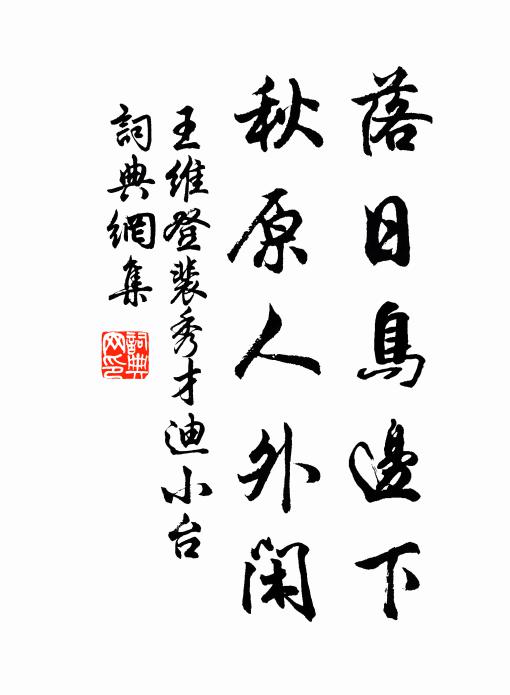 落日鳥邊下
秋原人外閑
王維登裴秀才迪小台
詞典網集
詞典網印